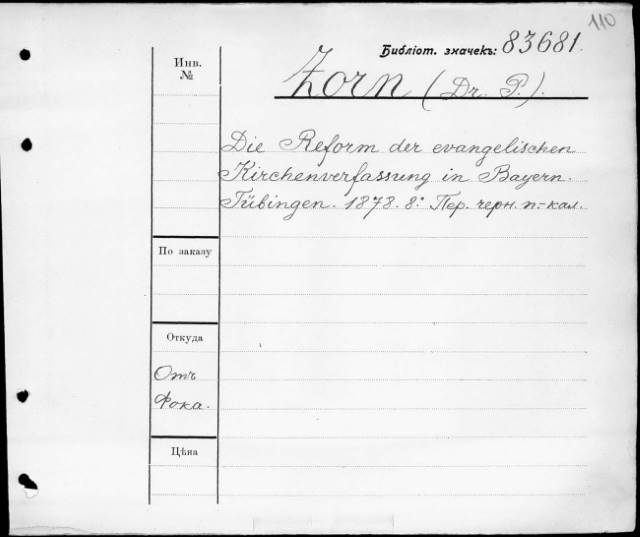 110
Библіот. значекъ: 83681.
Zorn (Dr. P.).
Инв.
№
Die Reform der evangelischen
Kirchenverfassung in Bayern.
Tübingen. 1878. 8º Пер. черн. п.-кал.
По заказу
Откуда
Отъ
Фока.
Цѣна